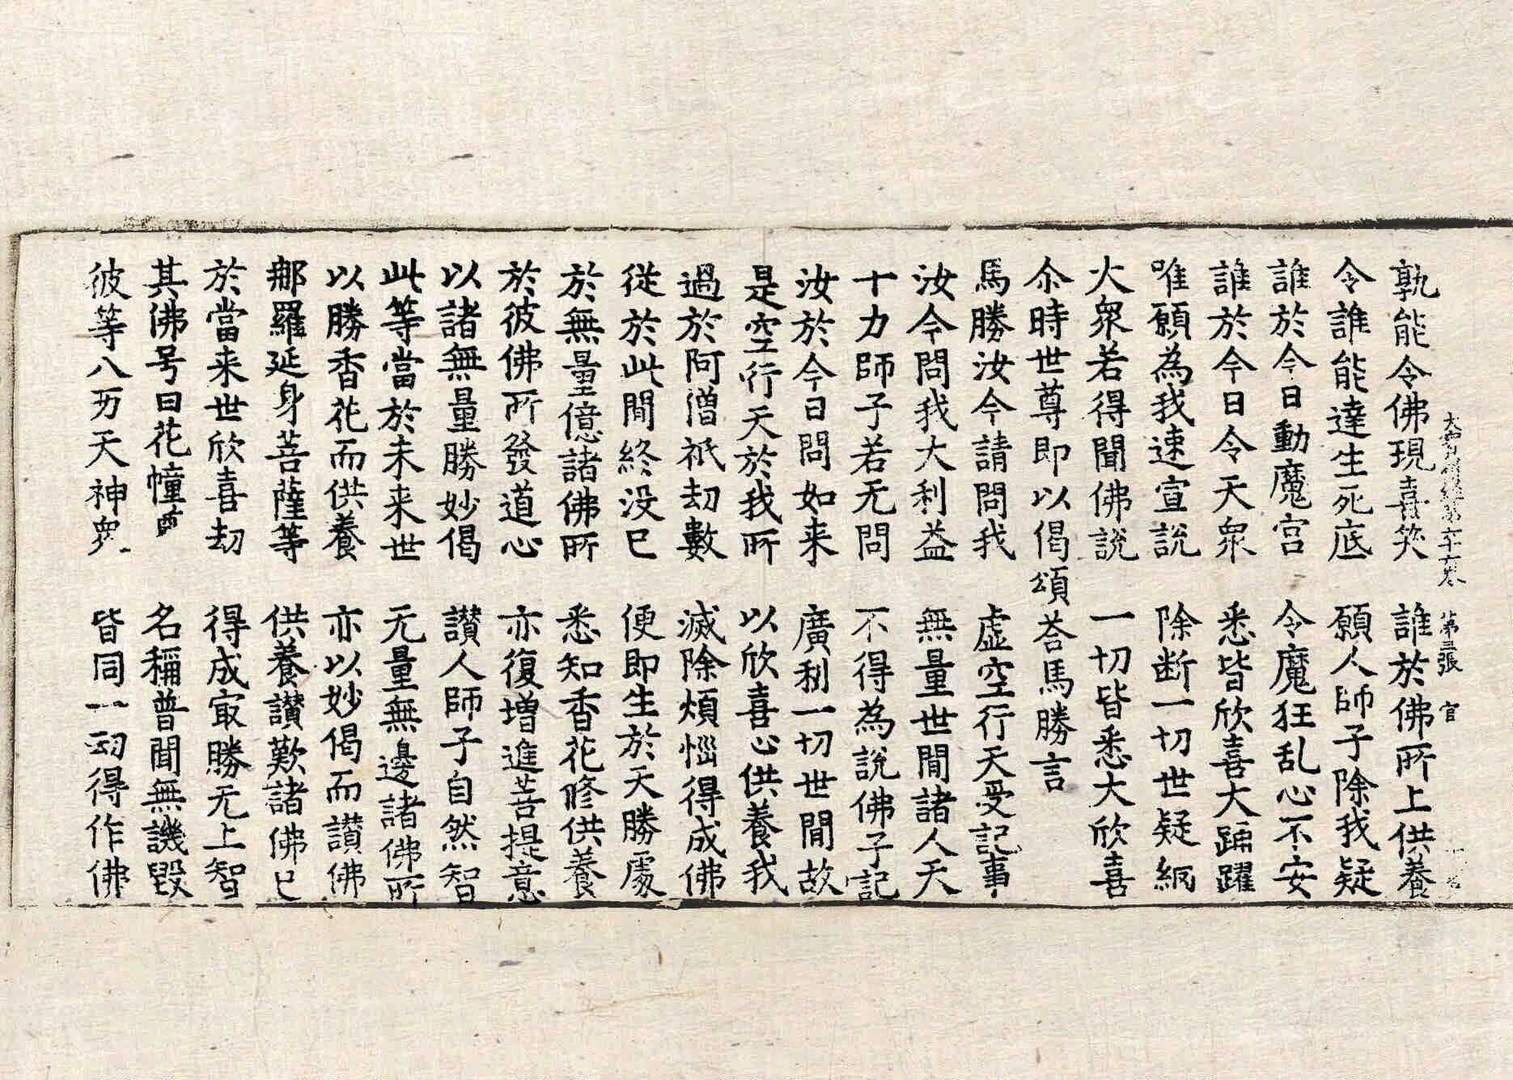 孰能令佛現喜笑　誰於佛所上供養
大寶積經第六十六卷　第三張　官
令誰能達生死底　願人師子除我疑
誰於今日動魔宮　令魔狂乱心不安
誰於今日令天衆　悉皆欣喜大踊躍
唯願為我速宣說　除断一切世疑網
大衆若得聞佛說　一切皆悉大欣喜
尒時世尊即以偈頌荅馬勝言
馬勝汝今請問我　虛空行天受記事
汝今問我大利益　無量世間諸人天
十力師子若无問　不得為說佛子記
汝於今日問如来　廣利一切世間故
是空行天於我所　以欣喜心供養我
過於阿僧祇劫數　滅除煩惱得成佛
從於此間終没已　便即生於天勝處
於無量億諸佛所　悉知香花修供養
於彼佛所發道心　亦復增進菩提意
以諸無量勝妙偈　讃人師子自然智
此等當於未来世　无量無邊諸佛所
以勝香花而供養　亦以妙偈而讃佛
那羅延身菩薩等　供養讃歎諸佛已
於當来世欣喜劫　得成㝡勝无上智
其佛号曰花幢尊　名稱普聞無譏毀
彼等八万天神衆　皆同一劫得作佛